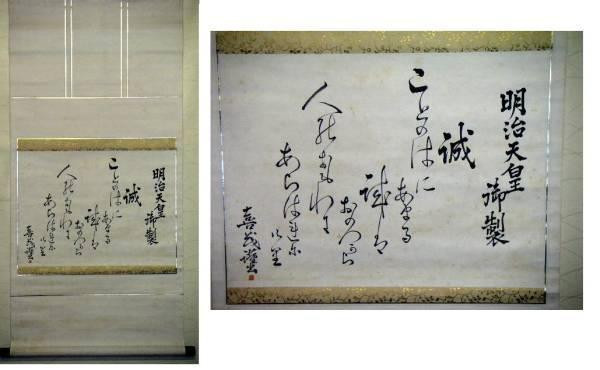 明治天皇
御製
誠
ことのはに
あまる
誠は
おのつから
人のおもわに
あらはれに
けり